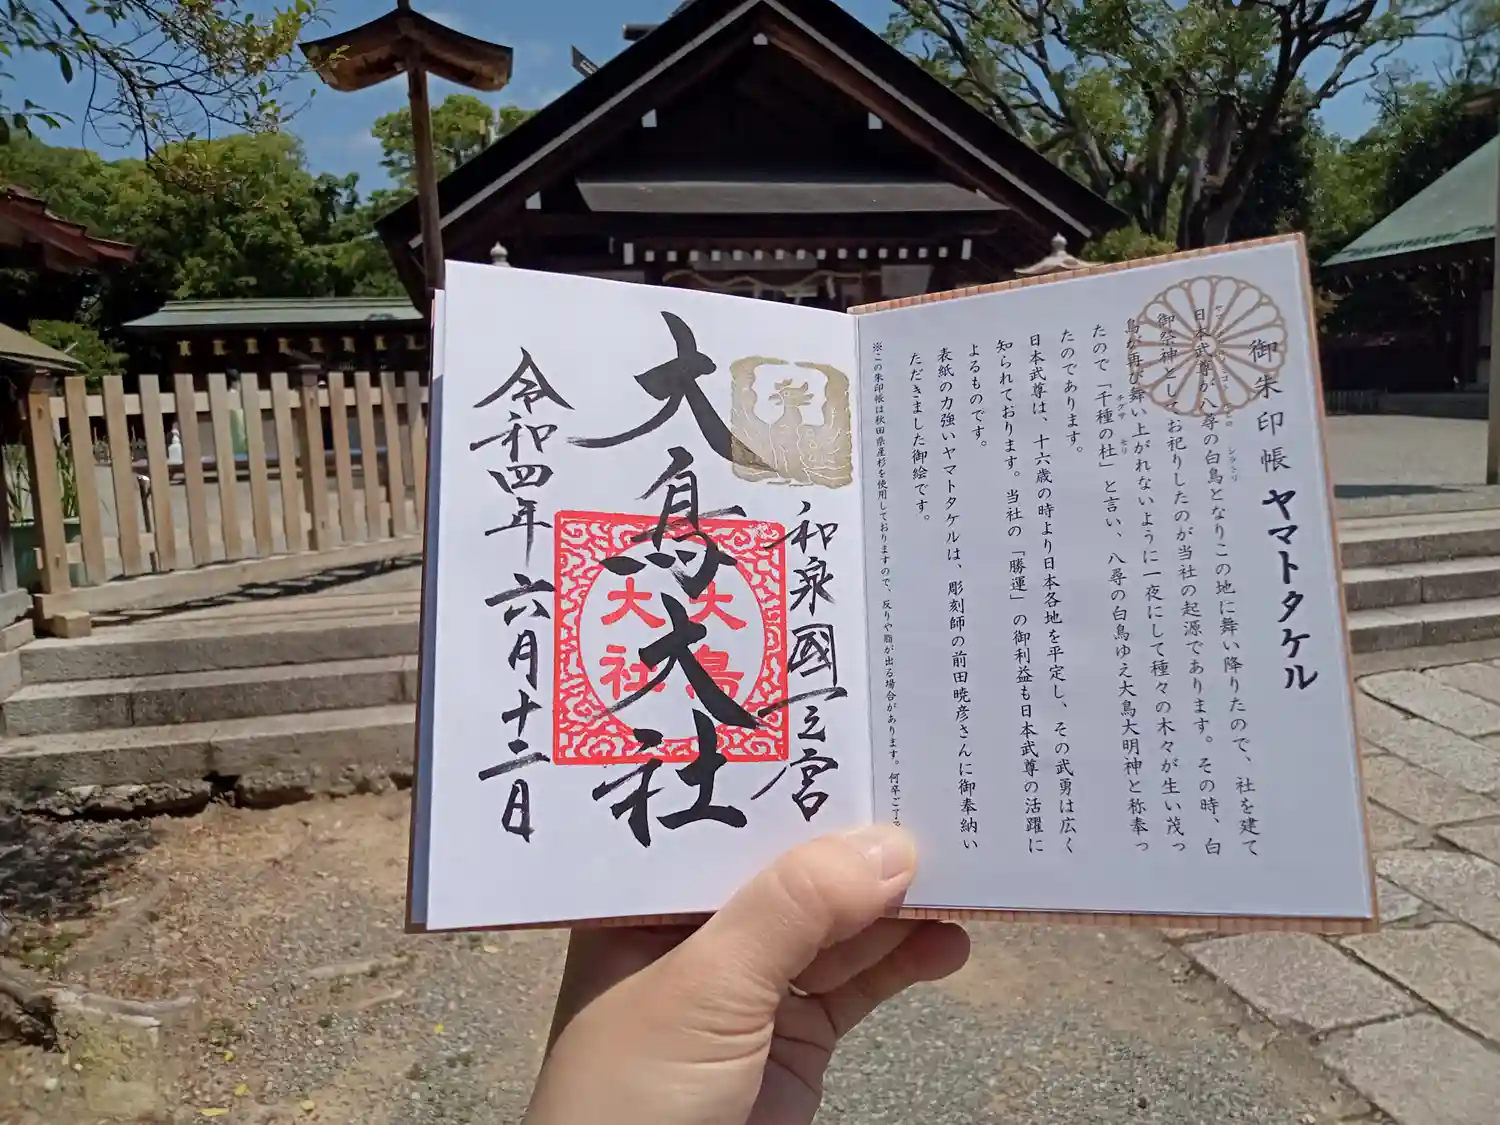 御朱印帳 ヤマトタケル
日本武尊が八尋の白鳥となりこの地に舞い降りたので、社を建て
御祭神としてお祀りしたのが当社の起源であります。その時、白
鳥が再び舞い上がれないように一夜にして種々の木々が生い茂っ
たので「千種の杜」と言い、八尋の白鳥ゆえ大鳥大明神と称奉っ
チグサ モリ
たのであります。
日本武尊は、十六歳の時より日本各地を平定し、その武勇は広く
知られております。当社の「勝運」の御利益も日本武尊の活躍に
よるものです。
表紙の力強いヤマトタケルは、彫刻師の前田暁彦さんに御奉納い
ただきました御絵です。
※この朱印帳は秋田県産杉を使用しておりますので、反りや脂が出る場合があります。何卒ご了
和泉國一之宮
大鳥大社
大鳥
大社
令和四年六月十二日